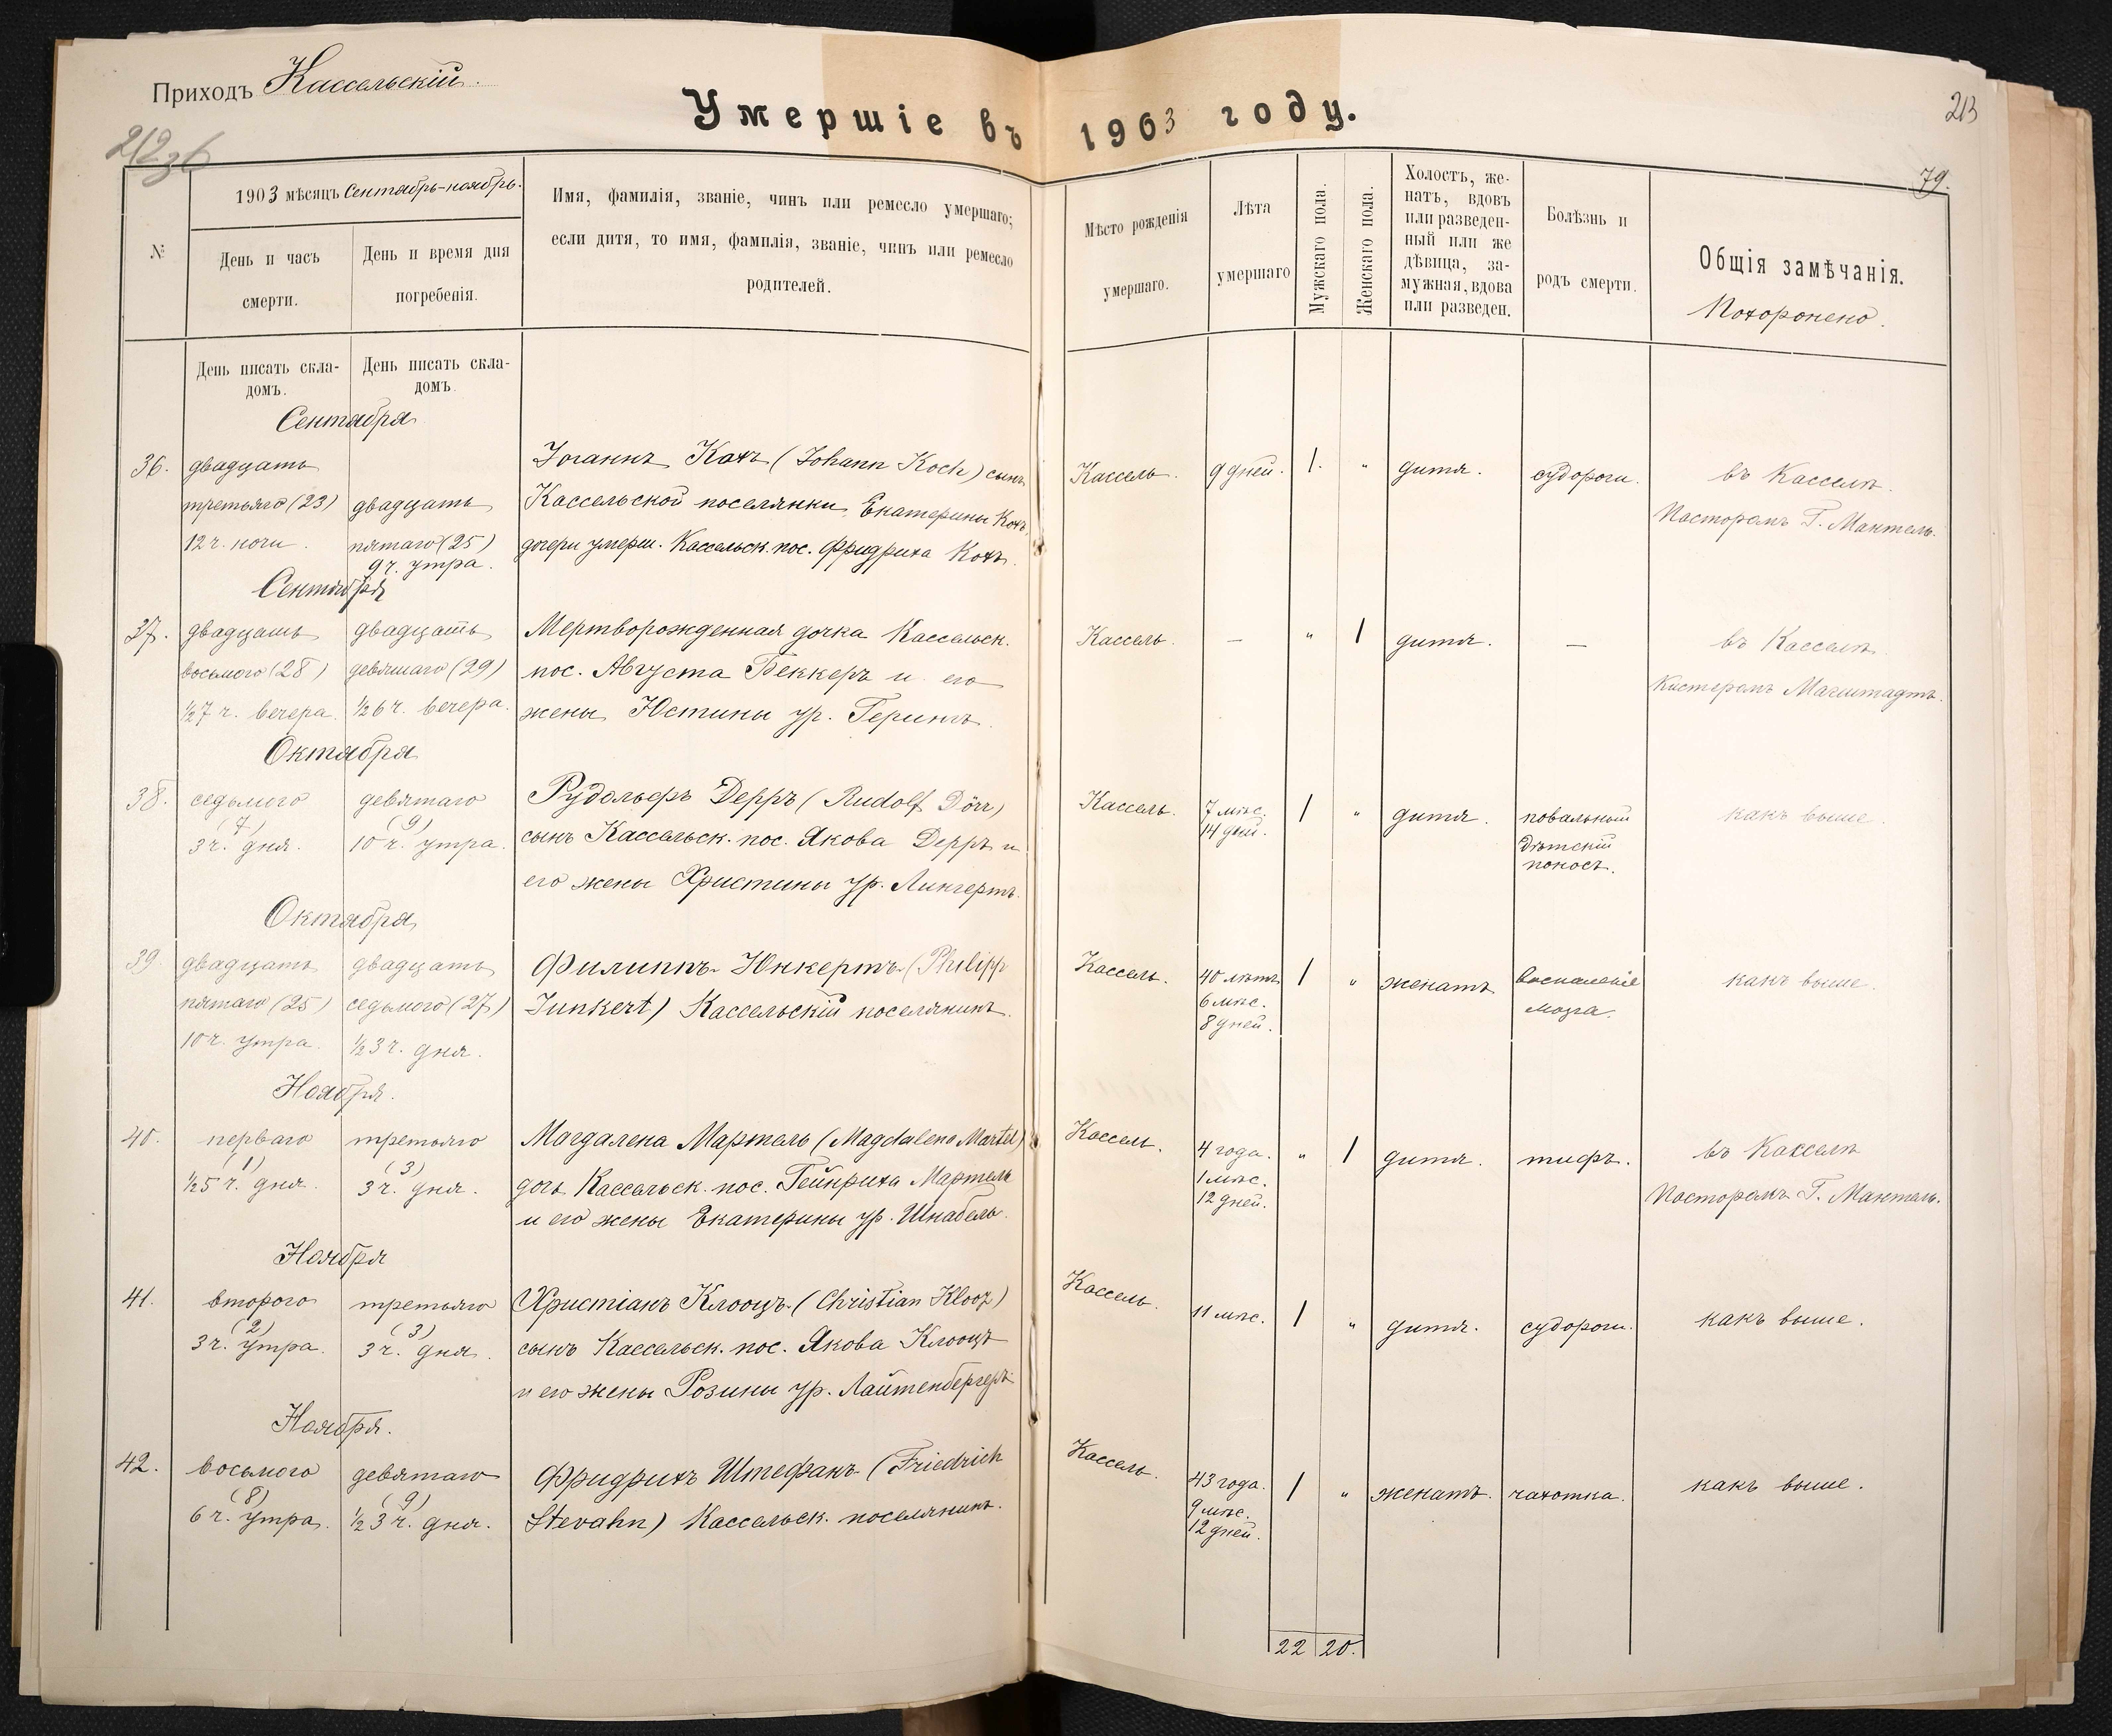 Приходъ Кассельскій.
Умершіе въ 1903 году.
212 об
213
79.
№
1903 мѣсяцъ Сентябрь-ноябрь.
День и часъ
смерти.
День и время дня
погребенія.
Имя, фамилія, званіе, чинъ или ремесло умершаго;
если дитя, то имя, фамилія, званіе, чинъ или ремесло
родителей.
Мѣсто рожденія
умершаго.
Лѣта
умершаго
Мужскаго пола.
Женскаго пола.
Холостъ, же-
натъ, вдовъ
или разведен-
ный или же
дѣвица, за-
мужная, вдова
или разведен.
Болѣзнь и
родъ смерти.
Общія замѣчанія.
Похоронено.
День писать скла-
домъ.
День писать скла-
домъ.
Сентября
36.
двадцать
третьяго (23)
12 ч. ночи.
двадцать
пятаго (25)
9 ч. утра.
Іоганнъ Кохъ (Johann Koch) сынъ
Кассельской поселянки Екатерины Кохъ,
дочери умерш. Кассельск. пос. Фридриха Кохъ.
Кассель.
9 дней.
1.
"
дитя.
судороги.
въ Касселѣ.
Пасторомъ Г. Мантель.
Сентября
37.
двадцать
восьмого (28)
½7 ч. вечера.
двадцать
девятаго (29)
½6 ч. вечера.
Мертворожденная дочка Кассельск.
пос. Августа Беккеръ и его
жены Юстины ур. Герингъ.
Кассель.
—
"
1
дитя.
—
въ Касселѣ
Кистеромъ Магштадтъ.
Октября
38.
седьмого
(7)
3 ч. дня.
девятаго
(9)
10 ч. утра.
Рудольфъ Дерръ (Rudolf Dörr)
сынъ Кассельск. пос. Якова Дерръ и
его жены Христины ур. Лингертъ.
Кассель.
7 мѣс.
14 дней.
1
"
дитя.
повальный
дѣтскій
поносъ.
какъ выше.
Октября
39.
двадцать
пятаго (25)
10 ч. утра.
двадцать
седьмого (27)
½3 ч. дня.
Филиппъ Юнкертъ (Philipp
Junkert) Кассельскій поселянинъ.
Кассель.
40 лѣтъ
6 мѣс.
8 дней.
1
"
женатъ
воспаленіе
мозга.
какъ выше.
Ноября.
40.
перваго
(1)
½5 ч. дня.
третьяго
(3)
3 ч. дня.
Магдалена Мартель (Magdalena Martel)
дочь Кассельск. пос. Гейнриха Мартель
и его жены Екатерины ур. Шнабель.
Кассель.
4 года.
1 мѣс.
12 дней.
"
1
дитя.
тифъ.
въ Касселѣ
Пасторомъ Г. Мантель.
Ноября
41.
второго
(2)
3 ч. утра.
третьяго
(3)
3 ч. дня.
Христіанъ Клооцъ (Christian Klooz)
сынъ Кассельск. пос. Якова Клооцъ
и его жены Розины ур. Лайтенбергеръ
Кассель.
11 мѣс.
1
"
дитя.
судороги.
какъ выше.
Ноября.
42.
восьмого
(8)
6 ч. утра.
девятаго
(9)
½3 ч. дня.
Фридрихъ Штефанъ (Friedrich
Stevahn) Кассельск. поселянинъ.
Кассель.
43 года.
9 мѣс.
12 дней.
1
"
женатъ.
чахотка.
какъ выше.
22
20.